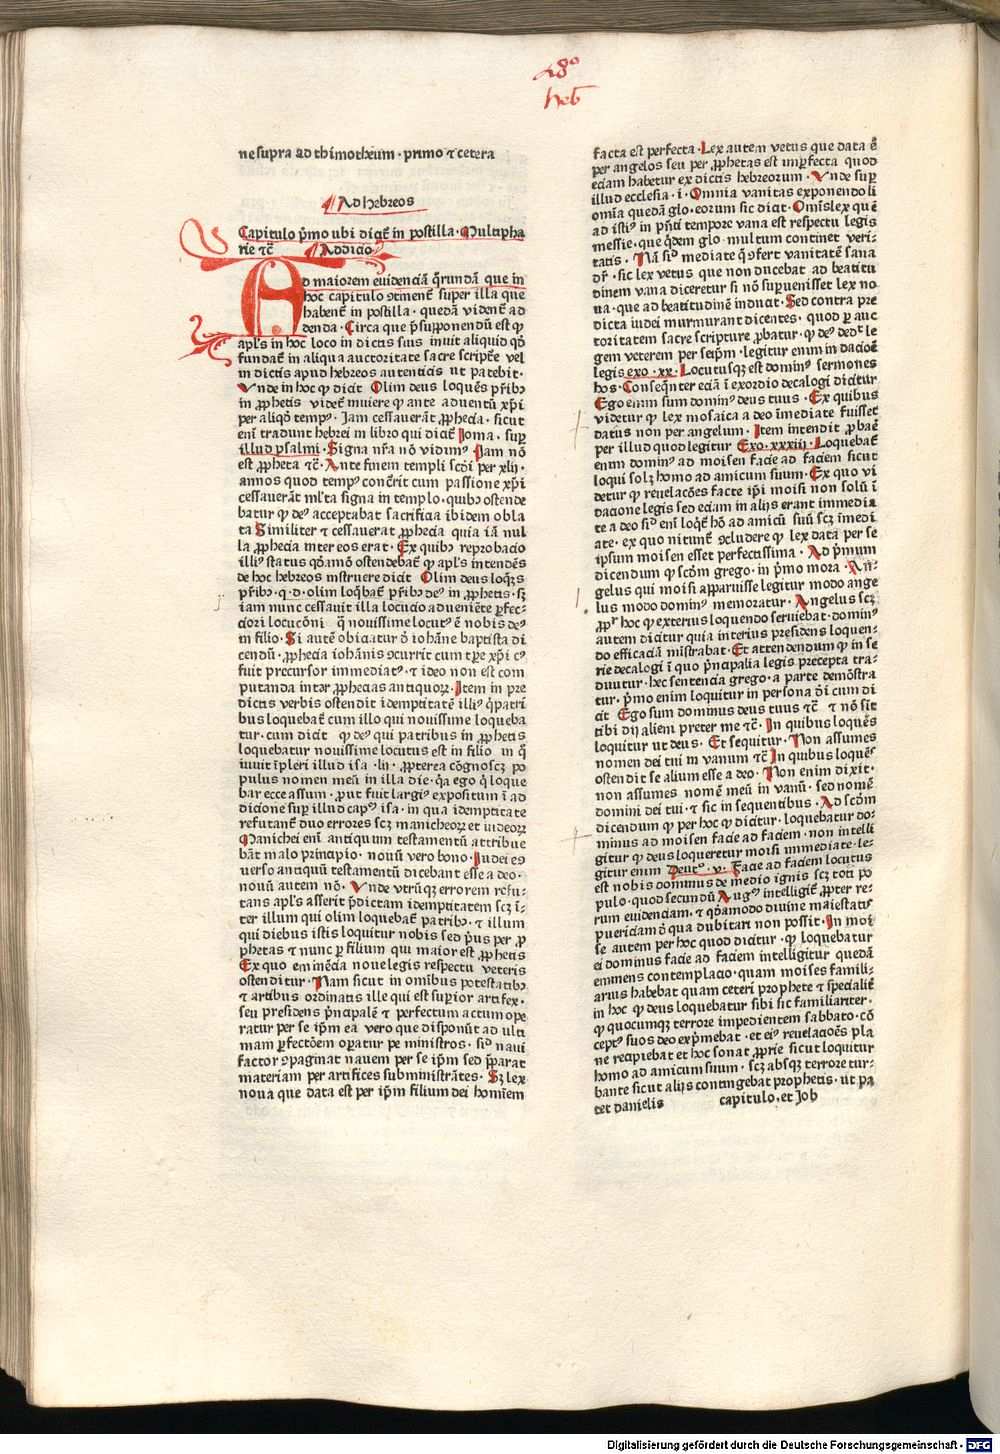 Ad
heb̄
ne supra ad thimotheum · primo ⁊ cetera
Ad hebreos
Capitulo p̄mo ubi dicit᷑ in postilla · Multipha
rie ⁊c̄ Addicio
Ad maiorem euidenciā q̄rundā que in
hoc capitulo ↄtinent᷑ super illa que
habent᷑ in postilla · quedā vident᷑ ad
denda · Circa que p̄supponendū est ꝙ
apl̄s in hoc loco in dictis suis inuit aliquid qd̄
fundat᷑ in aliqua auctoritate sacre scripture vel
in dictis apud hebreos autenticis ut patebit ·
Vnde in hoc ꝙ dicit Olim deus loquēs pr̄ibꝰ
in ꝓphetis videt᷑ muiere ꝙ ante aduentū xp̄i
per aliqd̄ tempꝰ · Jam cessauerāt ꝓphecia · sicut
eni tradunt hebrei in libro qui dicit᷑ Joma · sup̄
illud psalmi · Signa nr̄a nō vidimꝰ Jam nō
est ꝓpheta ⁊c̄ · Ante finem templi scdi per xlij ·
annos quod tempꝰ concērit cum passione xp̄i
cessauerāt ml̄ta signa in templo · quibꝰ ostende
batur ꝙ deꝰ acceptabat sacrificia ibidem obla
ta Similiter ⁊ cessauerat ꝓphecia quia iā nul
la ꝓphecia inter eos erat · Ex quibꝰ reprobacio
illiꝰ status qd̄amō ostendebat᷑ ꝙ apl̄s intendēs
de hoc hebreos instruere dicit Olim deus loq̄ns
pr̄ibꝰ · q · d · olim loq̄bat᷑ pr̄ibꝰ deꝰ in ꝓphetis · sꝫ
iam nunc cessauit illa locucio adueniēte ꝑfec-
ciori locucōni q̄ nouissime locutꝰ ē nobis deꝰ
in filio · Si autē obiciatur ð iohāne baptista di
cendū ꝓphecia iohānis ↄcurrit cum tp̄re xp̄i cꝰ
fuit precursor immediatꝰ · ⁊ ideo non est com
putanda inter ꝓphecias antiquoꝝ · Item in pre
dictis verbis ostendit idemptitatē illiꝰ q̄ patri
bus loquebat᷑ cum illo qui nouissime loqueba
tur · cum dicit ꝙ deꝰ qui patribus in ꝓphetis
loquebatur nouissime locutus est in filio in q̄
iuuit īpleri illud isa · lij · ꝓpterea cōgnoscꝫ po
pulus nomen meū in illa die · q̄a ego q̄ loque
bar ecce assum · put fuit largiꝰ expositum ī ad
dicione sup̄ illud capᵐ isa · in qua idemptitate
refutant᷑ duo errores scꝫ manicheoꝝ et iudeoꝝ
Manichei eni antiquum testamentū attribue
bāt malo principio · nouū vero bono · Iudei eꝯ
uerso antiquū testamentū dicebant esse a deo ·
nouū autem nō · Vnde vtrūqꝫ errorem refu-
tans apl̄s asserit p̄dictam idemptitatem scꝫ ī-
ter illum qui olim loquebat᷑ patribꝰ · ⁊ illum
qui diebus istis loquitur nobis sed p̄us per ꝓ
phetas ⁊ nunc ꝑ filium qui maior est ꝓphetis
Ex quo eminēcia noue legis respectu veteris
ostenditur · Nam sicut in omībus potestatibꝰ
⁊ artibus ordinatis ille qui est sup̄ior artifex ·
seu presidens p̄ncipalē ⁊ perfectum actum ope
ratur per se ip̄m ea vero que disponūt ad ulti
mam ꝑfectōem opatur pe ministros · sic̄ naui
factor ↄpaginat nauem per se ip̄m sed p̄parat
materiam per artifices subministrātes · Sꝫ lex
noua que data est per ip̄m filium dei homīem
facta est perfecta · Lex autem vetus que data ē
per angelos seu per ꝓphetas est imꝑfecta quod
eciam habetur ex dictis hebreorum · Vnde sup̄
illud ecclesia · i · Omnia vanitas exponendo li
omīa quedā glo · eorum sic dicit · Omīs lex quē
ad istiꝰ in p̄nti tempore vana est respectu legis
messie · que q̄dem glo · multum continet veri-
tatis · Nā sic̄ mediate q̄ ↄfert vanitatē sana
dr̄ · sic lex vetus que non ducebat ad beatitu
dinem vana diceretur si nō superuenisset lex no
ua · que ad beatitudinē inducit · Sed contra pre
dicta iudei murmurant dicentes · quod p̄ auc
toritatem sacre scripture ꝓbatur · ꝙ deꝰ dedᵗ le
gem veterem per seip̄m · legitur enim in dacioē
legis exo · xx · Locutusqꝫ est dominꝰ sermones
hos · Conseq̄nter eciā ī exordio decalogi dicitur
Ego enim sum dominꝰ deus tuus · Ex quibus
videtur ꝙ lex mosaica a deo īmediate fuisset
datus non per angelum · Item intendit ꝓbare
per illud quod legitur Exo · xxxiij · Loquebat᷑
enim dominꝰ ad moisen facie ad faciem sicut
loqui solꝫ homo ad amicum suum · Ex quo vi
detur ꝙ reuelacōes facte ip̄i moisi non solū ī
dacione legis sed eciam in alijs erant immedia
te a deo sic̄ eni loqt᷑ hō ad amicū suū scꝫ īmedi
ate · ex quo nitunt᷑ ↄcludere ꝙ lex data per se
ipsum moisen esset perfectissima · Ad p̄mum
dicendum ꝙ scd̄m grego · in p̄mo moꝝa · An-
gelus qui moisi apparuisse legitur modo ange
lus modo dominꝰ memoratur · Angelus scꝫ
ꝓpʳ hoc ꝙ exterius loquendo seruiebat · dominꝰ
autem dicitur quia interius presidens loquen-
do efficaciā mīstrabat · Et attendendum ꝙ in se
rie decalogi ī quo p̄ncipalia legis precepta tra-
duutur · hec sentencia grego · a parte demōstra
tur · p̄mo enim loquitur in persona ði cum di
cit Ego sum dominus deus tuus ⁊c̄ ⁊ nō sit
tibi dij alieni preter me ⁊c̄ · In quibus loquēs
loquitur ut deus · Et sequitur · Non assumes
nomen dei tui in vanum ⁊c̄ In quibus loquēs
ostendit se alium esse a deo · Non enim dixit ·
non assumes nomē meū in vanū · sed nomē
domini dei tui · ⁊ sic in sequentibus · Ad scd̄m
dicendum ꝙ per hoc ꝙ dicitur · loquebatur do-
minus ad moisen facie ad faciem · non intelli
gitur ꝙ deus loqueretur moisi immediate · le-
gitur enim Deutᵒ · v · Facie ad faciem locutus
est nobis dominus de medio ignis scꝫ toti po
pulo · quod secundū Augꝰ intelligit᷑ ꝓpter re-
rum euidenciam · ⁊ qd̄amodo diuine maiestatis
p̄uericiam ð qua dubitari non possit · In moi
se autem per hoc quod dicitur · ꝙ loquebatur
ei dominus facie ad faciem intelligitur quedā
eminens contemplacio · quam moises famili-
arius habebat quam ceteri prophete ⁊ specialit᷑
in hoc ꝙ deus loquebatur sibi sic familiariter ·
ꝙ quocumqꝫ terrore impedientem sabbato · cō
ceptꝰ suos deo exp̄mebat · et eiꝰ reuelacioēs pla
ne recipiebat et hoc sonat ꝓprie sicut loquitur
homo ad amicum suum · scꝫ absqꝫ terrore tur-
bante sicut alijs contingebat prophetis · ut pa
tet danielis capitulo · et Job
Digitalisierung gefördert durch die Deutsche Forschungsgemeinschaft - DFG